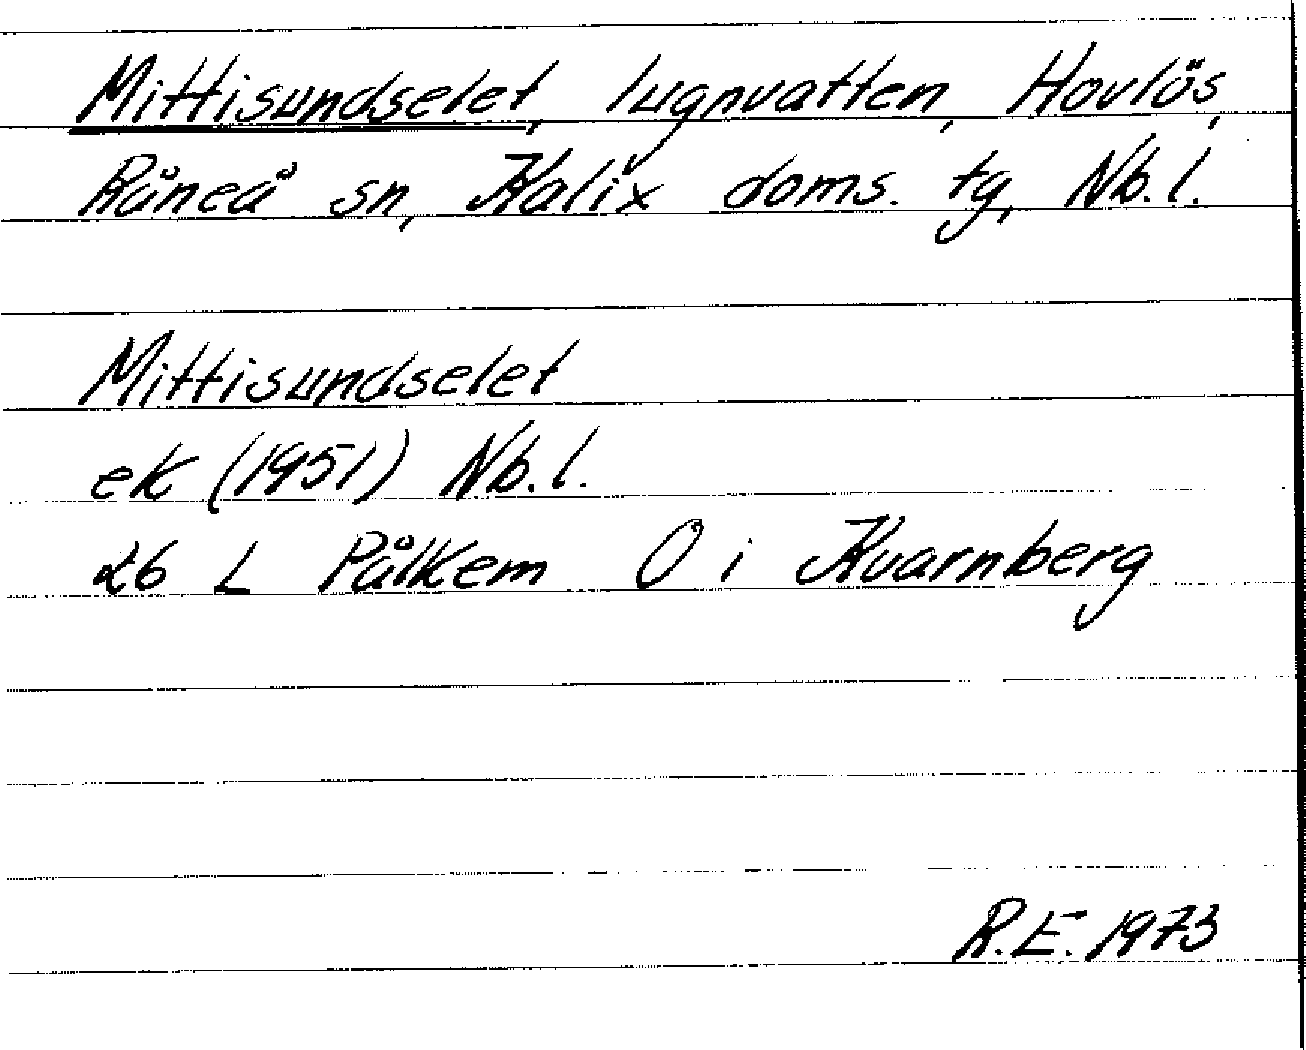 Mittisundselet, lugnvatten, Hovlös,
Råneå sn, Kalix doms. tg, Nb. l.
Mittisundselet
ek (1951) Nb. l.
26 L Pålkem O i Kvarnberg
R.E. 1973